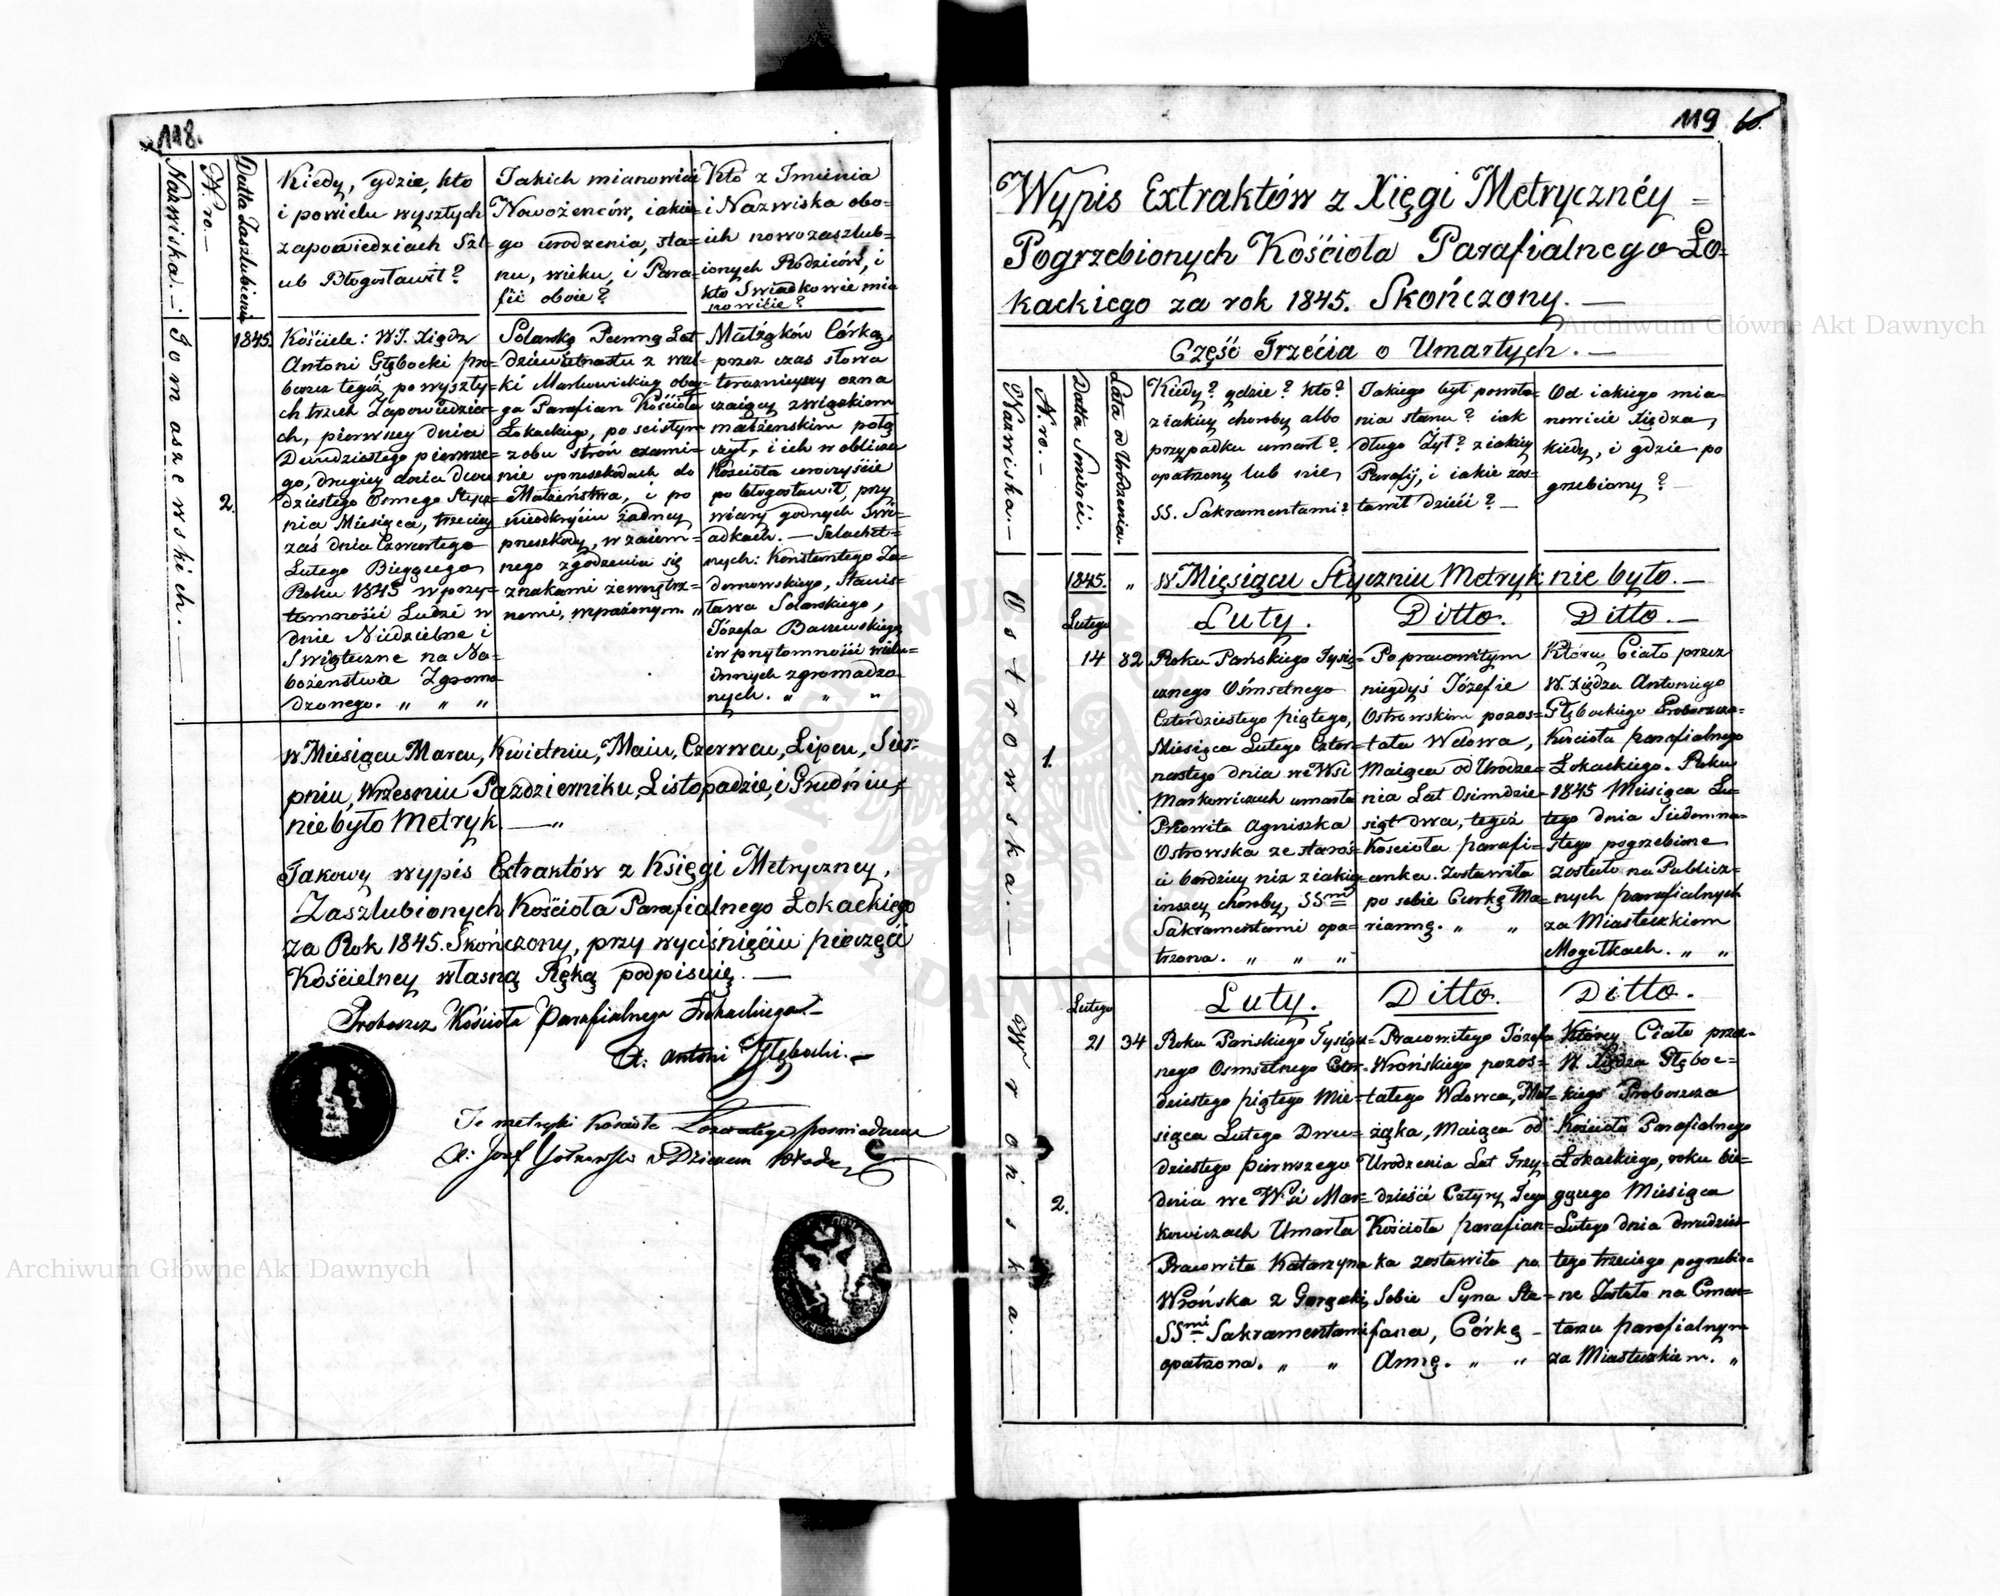 118.
Nazwiska.
N.ro.
Datta Zaszlubienia
Kiedy, gdzie, kto
i powielu wyszłych
zapowiedziach Szl=
ub Błogosławił?
Jakich mianowicie
Nowożenców, i akie=
go urodzenia, sta=
nu, wieku, i Para=
fii oboie?
Kto z Imienia
i Nazwiska obo=
ich nowozaszlub=
ionych Rodziców, i
kto Swiadkowie mia
nowicie?
Tomaszewskich.
2.
1845.
Kościele: W.J. Xiądz
Antoni Głębocki pro=
boszcz tegoż, po wyszły=
ch trzech Zapowiedzia=
ch, pierwszey dnia
Dwudziestego pierwsze=
go, drugiey dnia dwu
dziestego Osmego Stycz=
nia Miesiąca, trzeciey
zaś dnia Czwartego
Lutego Bieżącego
Roku 1845 w przy=
tomności Ludzi w
dnie Niedzielne i
Swiąteczne na Na=
bożeństwa Zgroma
dzonego. „ „ „
Solarską Pannę Lat
dziewietnastu z wsi=
ki Markowickiey oboy=
ga Parafian Kościoła
Łokackiego, po scisłym
z obu strón exami=
nie oprzeszkodach do
Małżeństwa, i po
nieodkryciu żadney
przeszkody, w zaiem=
nego zgodzenia się
znakami zewnętrz=
nemi, wyrażonym. „
Małżąków Córkę,
przez czas słowa
teraznieyszy ozna
czaiący związkiem
małżenskim połą
czył, i ich w obliczu
Kościoła uroczyście
po błogosławił, przy
wiary godnych Swi=
adkach. — Szlachet=
nych: Konstantego Za=
domowskiego, Stanis=
ława Solarskiego,
Józefa Baczewskiego,
i w przytomności wielu=
innych zgromadzo
nych. „ „ „
w Miesiącu Marcu, Kwietniu, Maiu, Czerwcu, Lipcu, Sier=
pniu, Wrzesniu Pazdzierniku, Listopadzie, i Grudniu,
niebyło Metryk. —„
Takowy wypis Extraktów z Księgi Metryczney,
Zaszlubionych Kościoła Parafialnego Łokackiego
za Rok 1845. Skończony, przy wyciśnięciu pieczęci
Kościelney własną Ręką podpisuię. —
Proboszcz Kościoła Parafialnego Łokackiego
X. Antoni Głębocki. —
Te metryki Kosciła
X: Jozef
119 60.
Wypis Extraktów z Xięgi Metrycznéy =
Pogrzebionych Kościoła Parafialnego Ło=
kackiego za rok 1845. Skończony. —
Część Trzécia o Umarłych. —
Nazwiska.—
N.ro.—
Datta Smierci.
Lata od Urodzenia.
Kiedy? gdzie? kto?
z iakiey choroby albo
przypadku umarł?
opatrzony lub nie,
SS. Sakramentami?
Jakiego był powoła=
nia stanu? iak
długo Żył? z iakiey
Parafij, i iakie zos=
tawił dzieci? —
Od iakiego mia=
nowicie Xiędza,
kiedy, i gdzie po
grzebiony? —
1845. „ w Mięsiącu Styczniu Metryk nie było. —
Lutego Luty. Ditto. Ditto. —
Ostrowska. —
1.
14 82
Roku Pańskiego Tysią=
cznego Ośmsetnego
Czterdziestego piątego,
Miesiąca Lutego Czter=
nastego dnia we Wsi
Markowiczach umarła
Prcowita Agniszka
Ostrowska ze staroś=
ci bardziey niz z iakiey
inszey choroby, SS.mi
Sakramentami opa=
trzona. „ „ „
Po pracowitym
niegdyś Józefie
Ostrowskim pozos=
tała Wdowa,
Maiąca od Urodze=
nia Lat Osimdzie=
siąt dwa, tegoż
Kościoła parafi=
anka. Zostawiła
po sobie Curkę Ma=
riannę. „ „
Którey Ciało przez
W. Xiędza Antoniego
Głębockiego Proboszcza=
Kościoła parafialnego
Łokackiego. Roku
1845 Miesiąca Lu=
tego dnia Siedemna=
stego pogrzebione
zostało na Publicz=
nych parafialnych
za Miasteczkiem
Mogełkach. „ „
Lutego Luty. Ditto. Ditto.
Wrońska. —
2.
21 34
Roku Pańskiego Tysiącz=
nego Osmsetnego Czter=
dziestego piątego Mie=
siąca Lutego Dwu=
dziestego pierwszego
dnia we Wsi Mar=
kowiczach Umarła
Pracowita Katarzyna
Wrońska z Gorączki,
SS.mi Sakramentami
opatrzona. „ „
Pracowitego Józefa
Wrońskiego pozos=
tałego Wdowca, Mał=
żąka, Maiąca od
Urodzenia Lat Trzy=
dzieści Cztyry Tego
Kościoła parafian=
ka zostawiła po
Sobie Syna Ste=
fana, Córkę —
Annę. „ „
Którey Ciało prze=
W. Xiędza Głęboc=
kiego Proboszcza
Kościoła Parafialnego
Łokackiego, roku bie=
żącego Miesiąca
Lutego dnia dwudzies=
tego trzeciego pogrzebio=
ne Zostało na Cmen=
tazu parafialnym
za Miasteczkiem. „
Archiwum Główne Akt Dawnych
Archiwum Główne Akt Dawnych